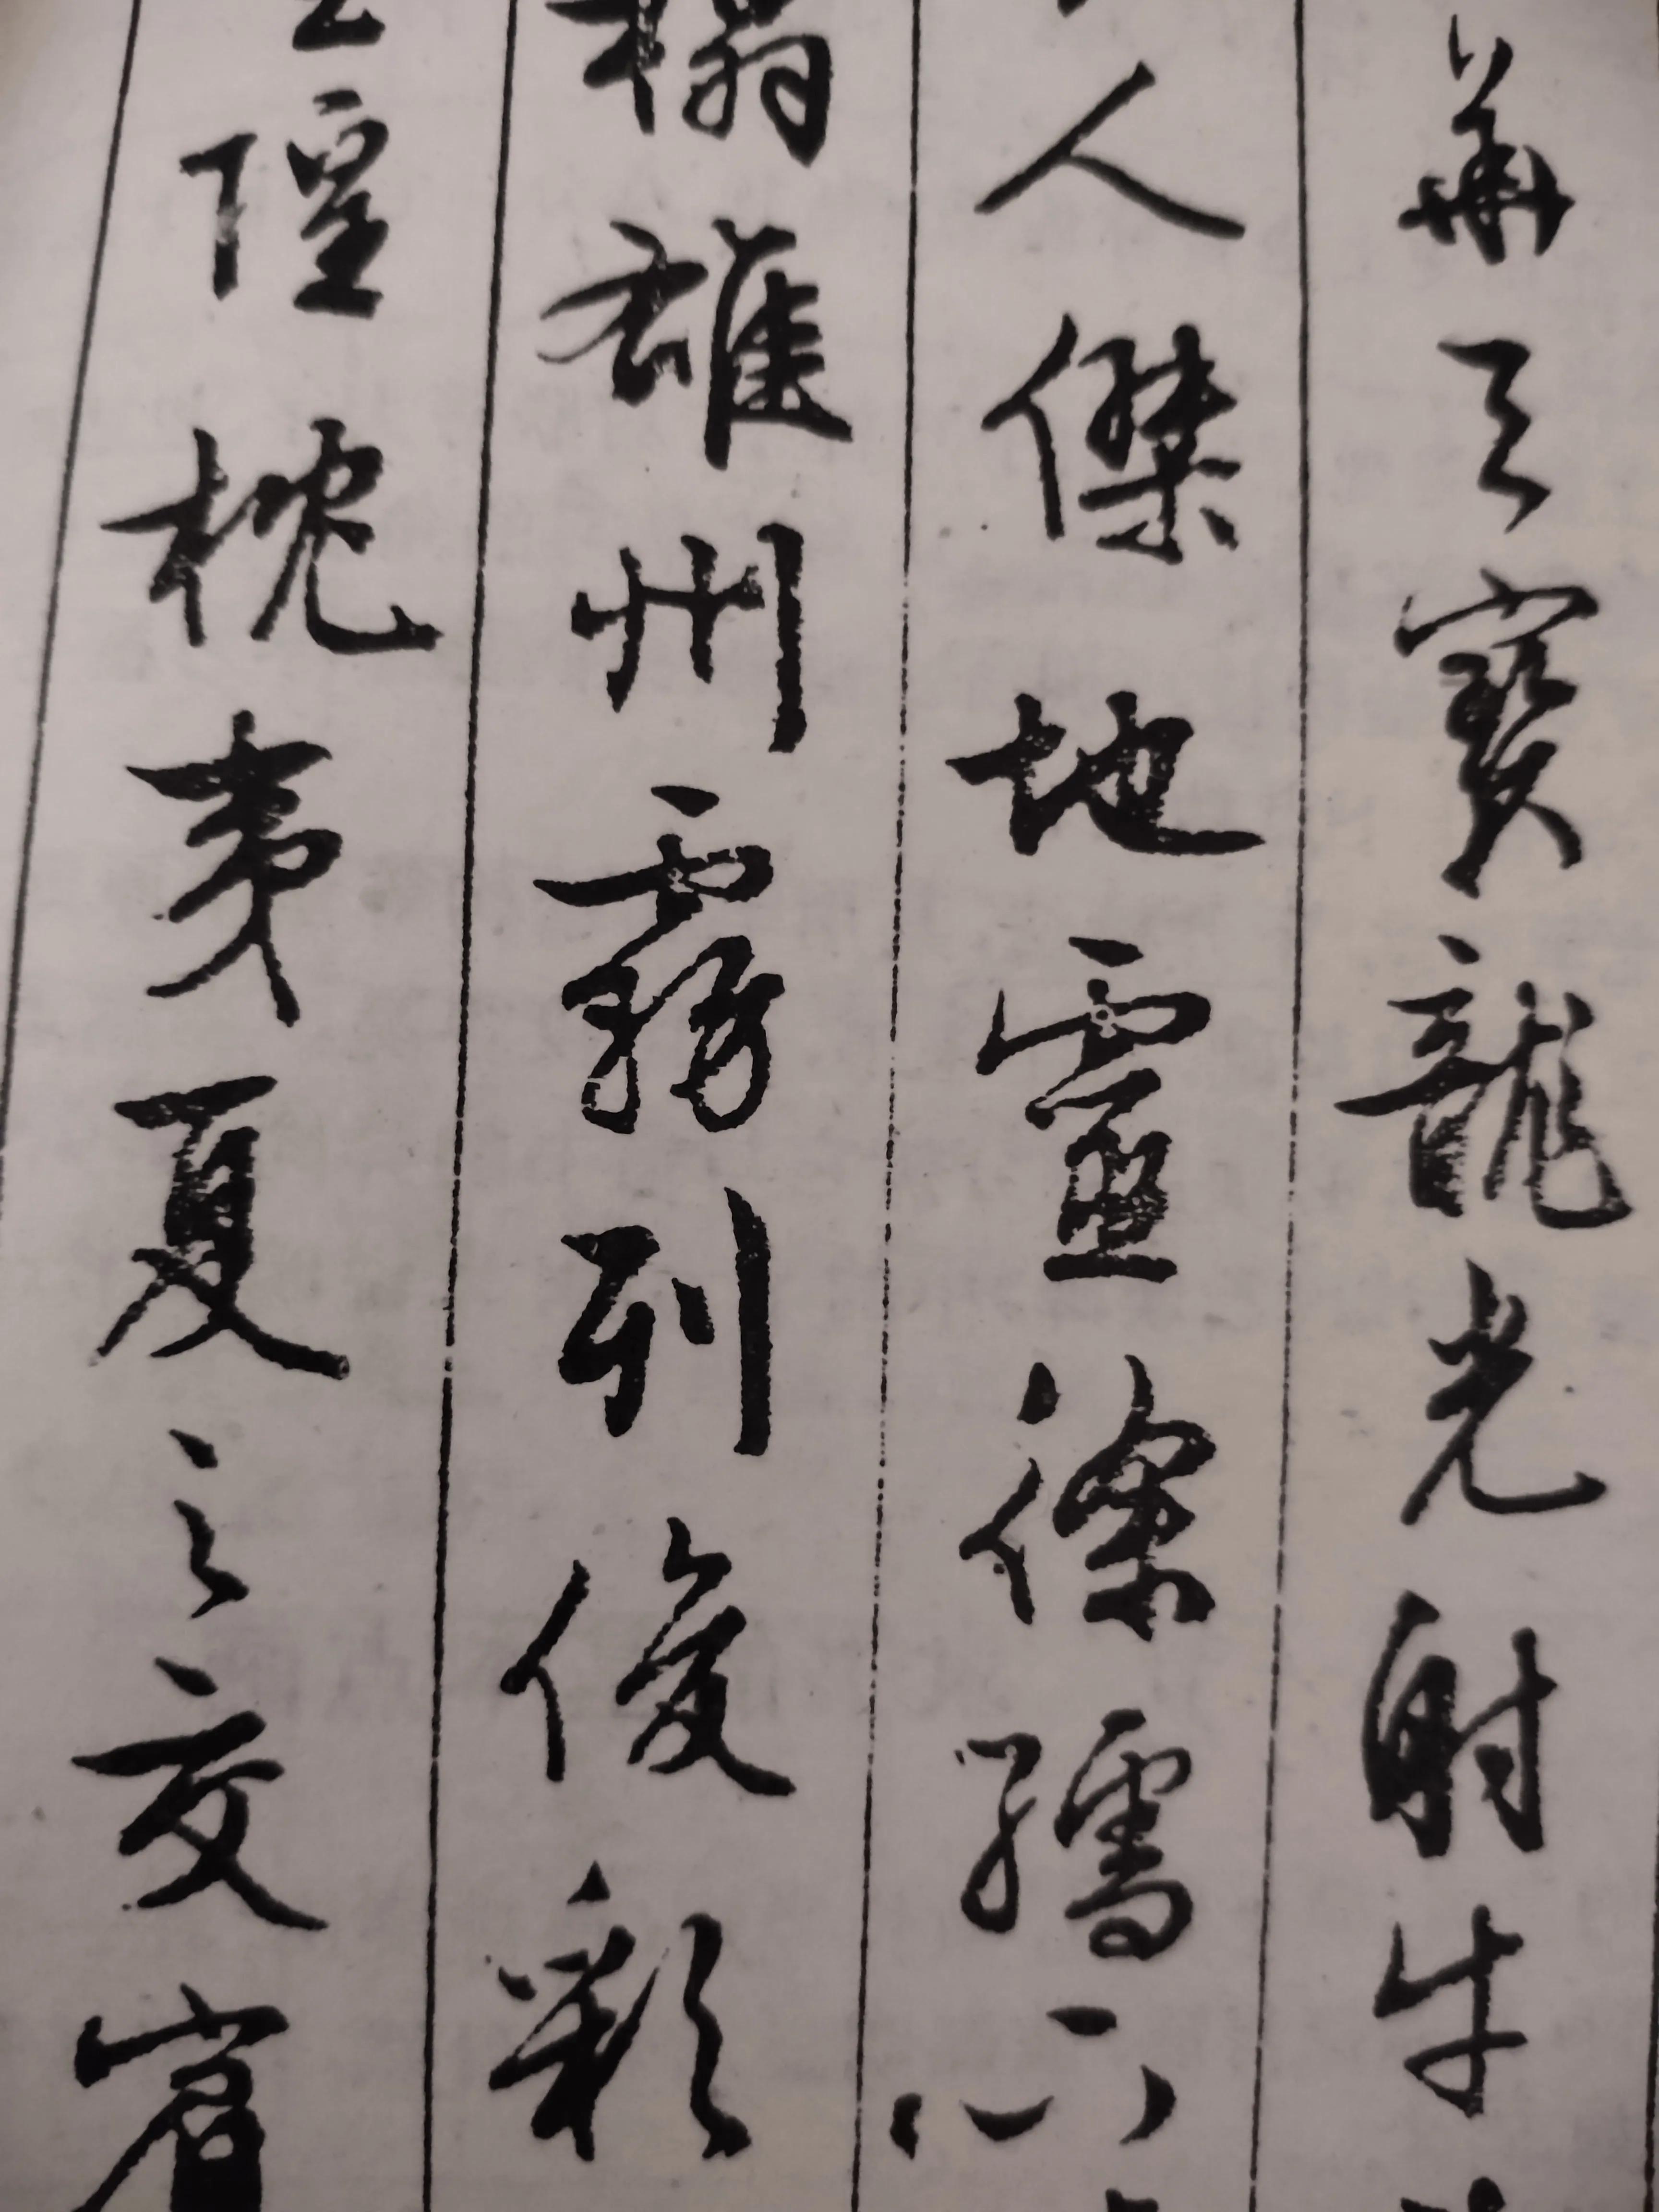 華天寶龍光射牛
人傑地靈徐孺下
榻雄州霧列俊彩
隍枕夷夏之交賓